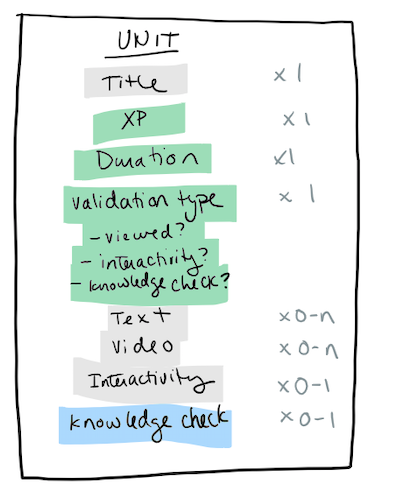 UNIT
Title x1
XP x1
Duration x1
validation type x1
- viewed?
- interactivity?
- knowledge check?
Text x0-n
Video x0-n
Interactivity x0-1
knowledge check x0-1